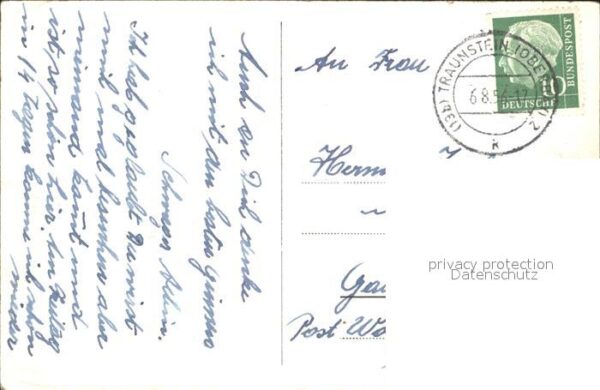 Auch an Dich denke
ich mit den besten Grüssen
Schwager
Ich hab geglaubt Du wirst
mich mal besuchen aber
niemand kommt und
ist so schön hier. Am Freitag
in 14 Tagen komme ich schon
wieder
An Frau
Herm
Post Wa
(13b) TRAUNSTEIN (OBERB
6.8.56-17
k
10
DEUTSCHE
BUNDESPOST
privacy protection
Datenschutz